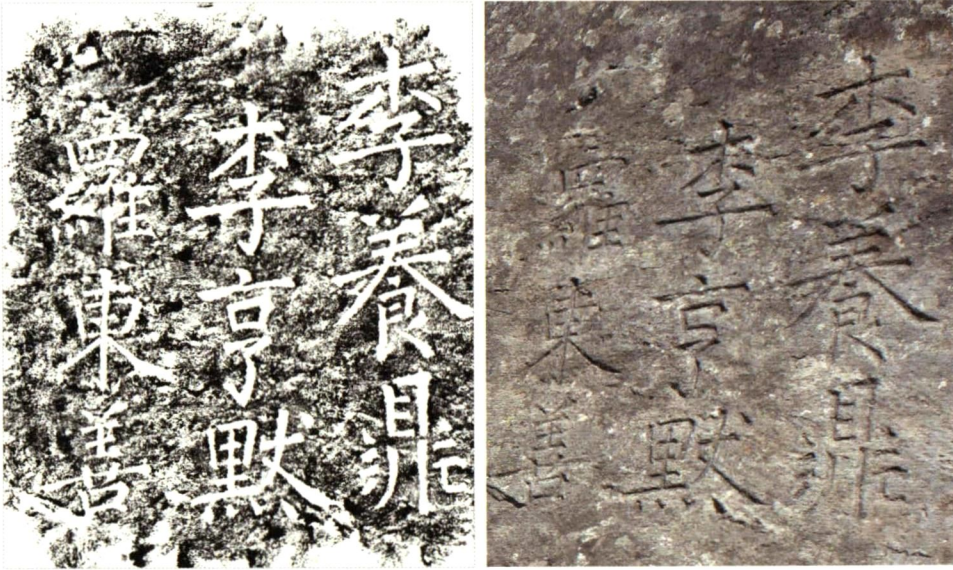 李養鼎
李亨默
羅東善
李養鼎
李亨默
羅東善